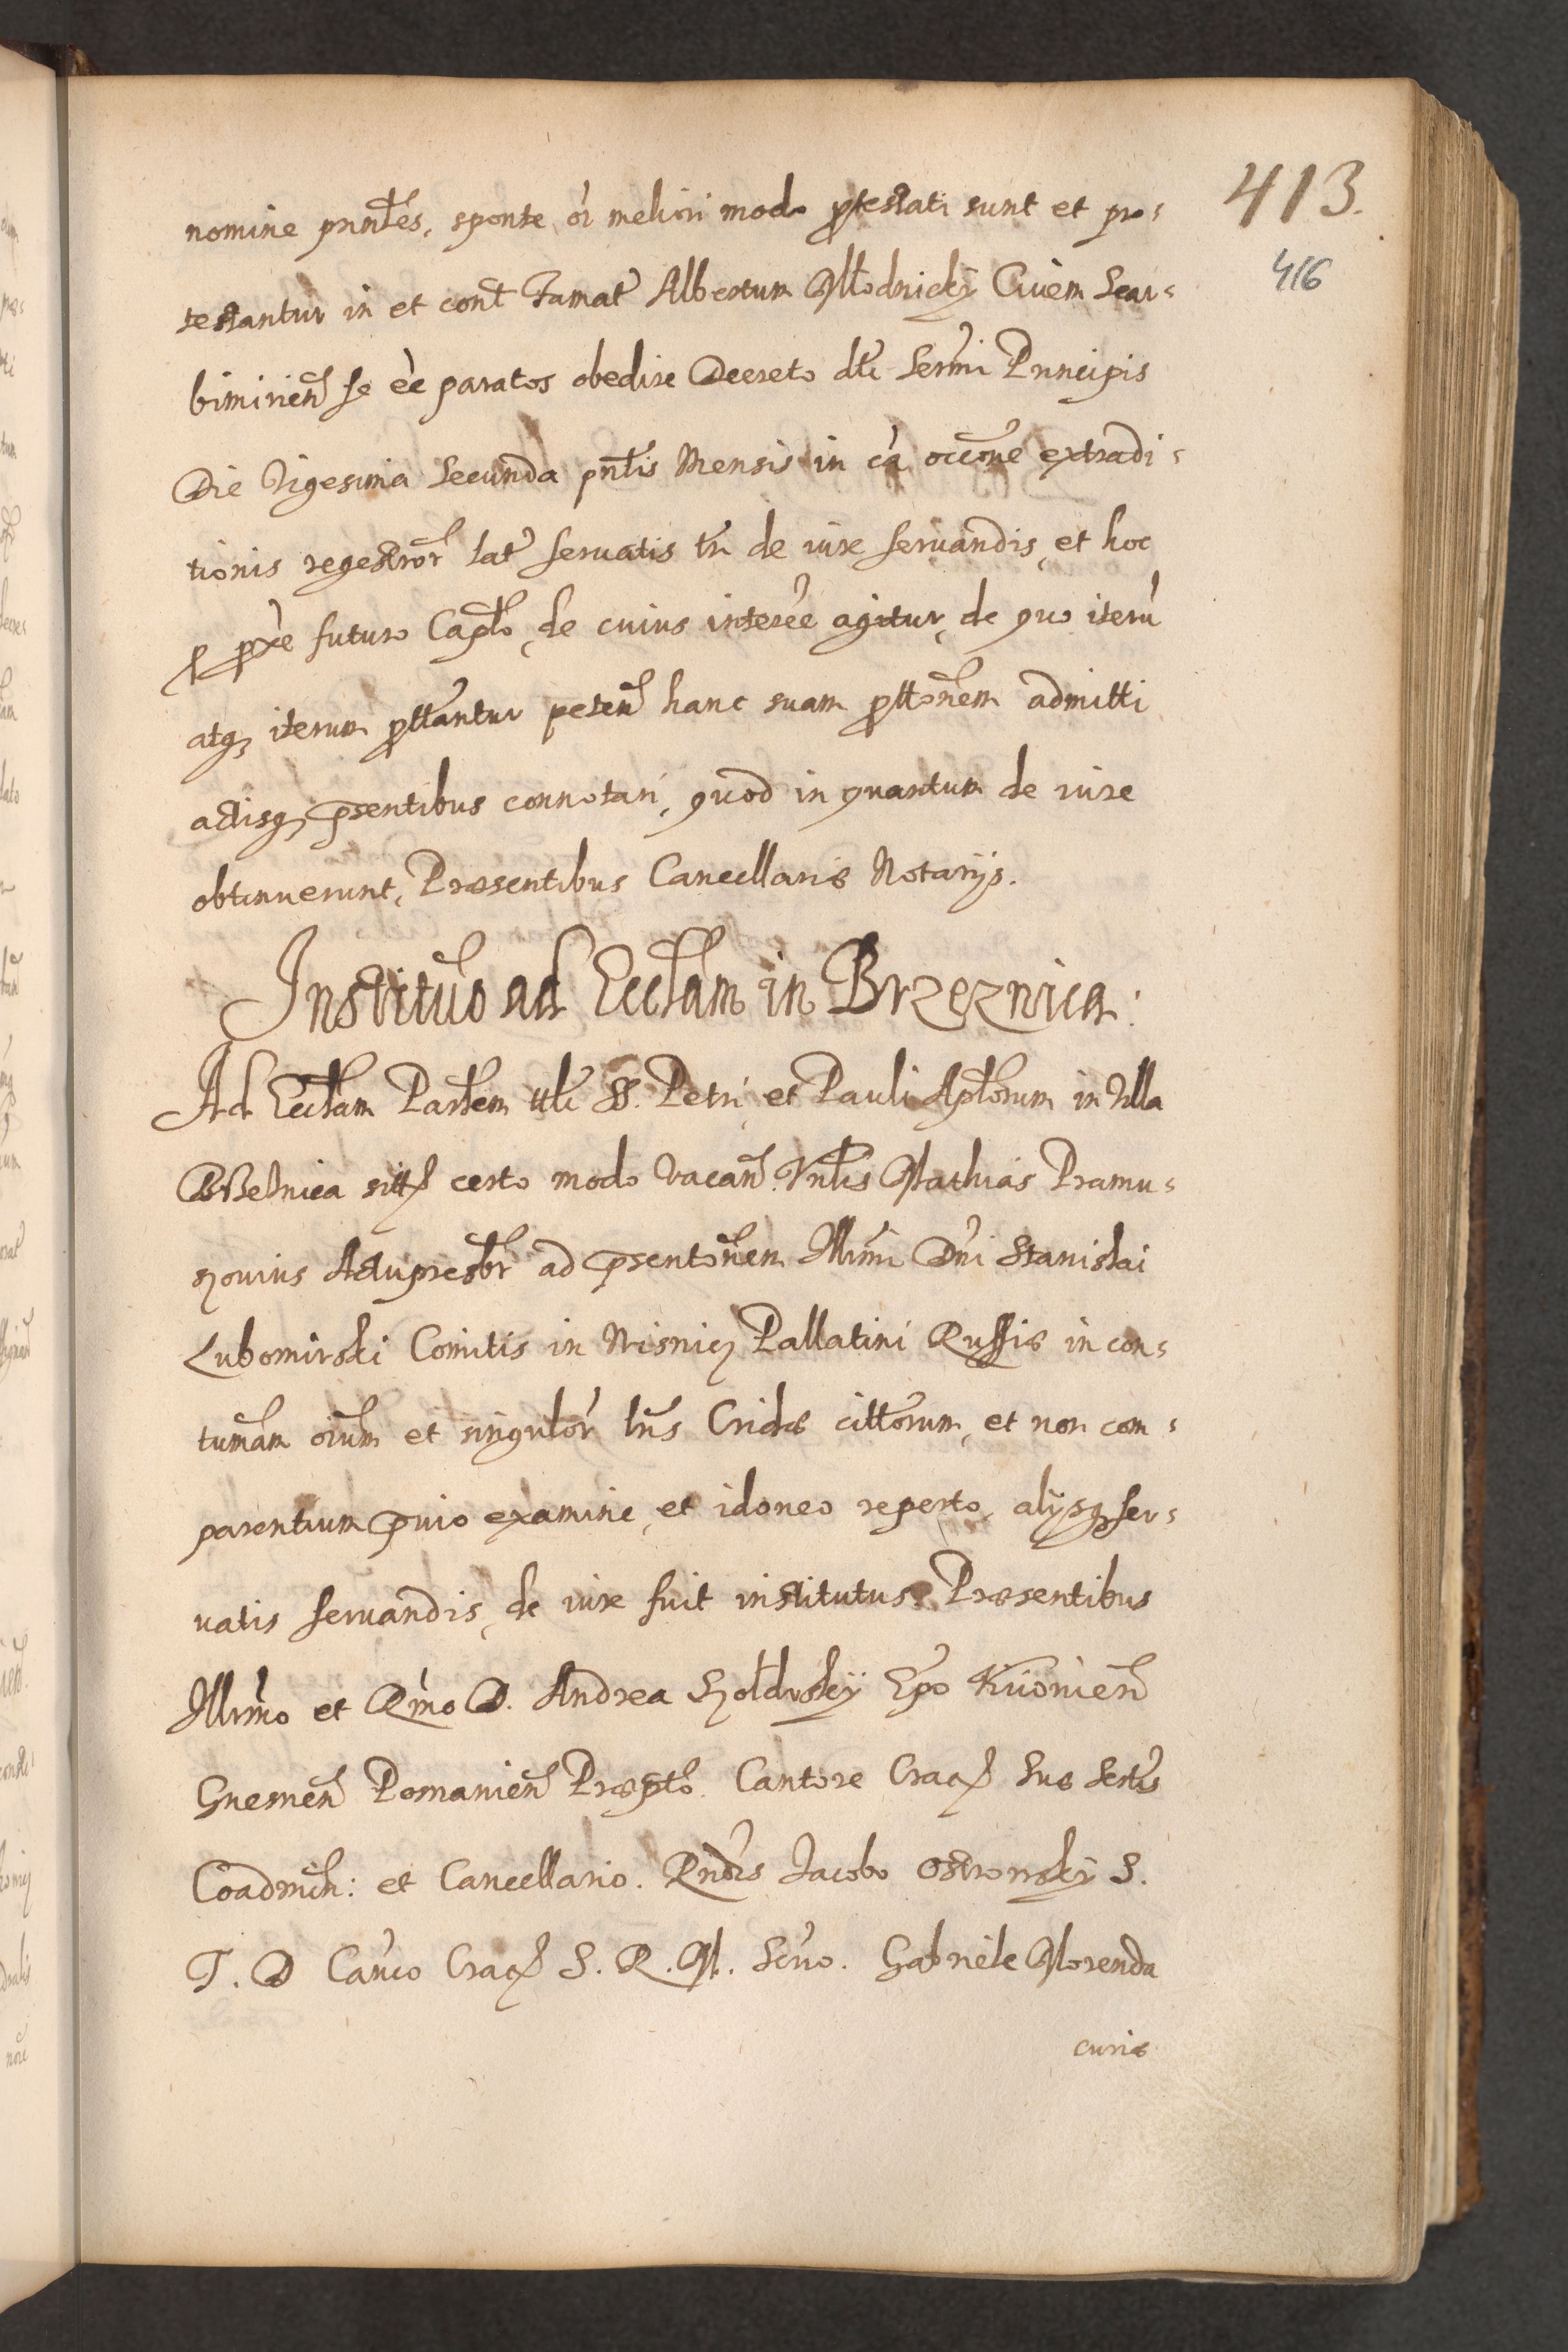 413.
416
nomine pnñtes, sponte oi meliori modo ptestati sunt et pro=
testantur in et cont Famat Albertum Młodnicky Ciuem Scar=
bimirien se ee paratos obedire Decreto dti Sermi Principis
Die Vigesima Secunda pntis Mensis in ca occone extradi=
tionis regestror lat seruatis tn de iure seruandis, et hoc
p pxe futuro Caplo, de cuius interee agitur, de quo iteru
atq iterum pttantur peten hanc suam pttonem admitti
actisq psentibus connotari, quod in quantum de iure
obtinuerunt, Præsentibus Cancellariæ Notarijs.
Institutio ad Ecclam in Brzeznica:
Ad Ecclam Parlem ttli SS. Petri et Pauli Aplorum in Villa
Brzeznica sitt certo modo vacan. Vnlis Mathias Pramu=
szouius Actupresbr ad psentonem Illmi Dni Stanislai
Lubomirski Comitis in Wisnicz Pallatini Russiæ in con=
tumam oium et singulor lris Cridæ cittorum, et non com=
parentium pruio examine, et idoneo reperto, alijsq ser=
uatis seruandis, de iure fuit institutus. Præsentibus
Illmo et Rmo D. Andrea Szołdrsky Epo Kiiouien
Gnesnen Posnanien Præpto. Cantore Crac Suæ Sertis
Coadmin: et Cancellario. Rndis Jacobo Ostrowsky S.
T. D Canco Crac S. R. M. Scrio. Gabriele Morenda
curiæ